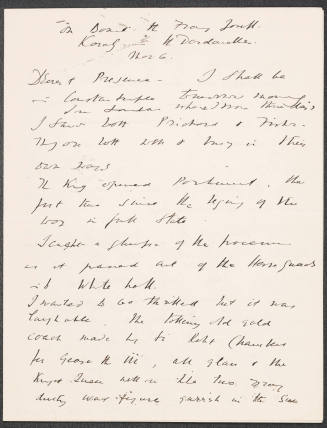 On Board the
Nov 6.
Dearest Presence - I shall be
in Constantinople tomorrow morning
I saw both Prichard &
They are both well & busy in their
own ways
The King opened Parliament, the
first time since the beginning of the
war in full state.
I caught a glimpse of the procession
as it passed out of the Horseguards
into Whitehall.
I wanted to be thrilled but it was
laughable. The tottering old gold
coach made by Sir Robt Chambers
for George the III, all glass & the
King & Queen within like two
dusty wax figures garish in the